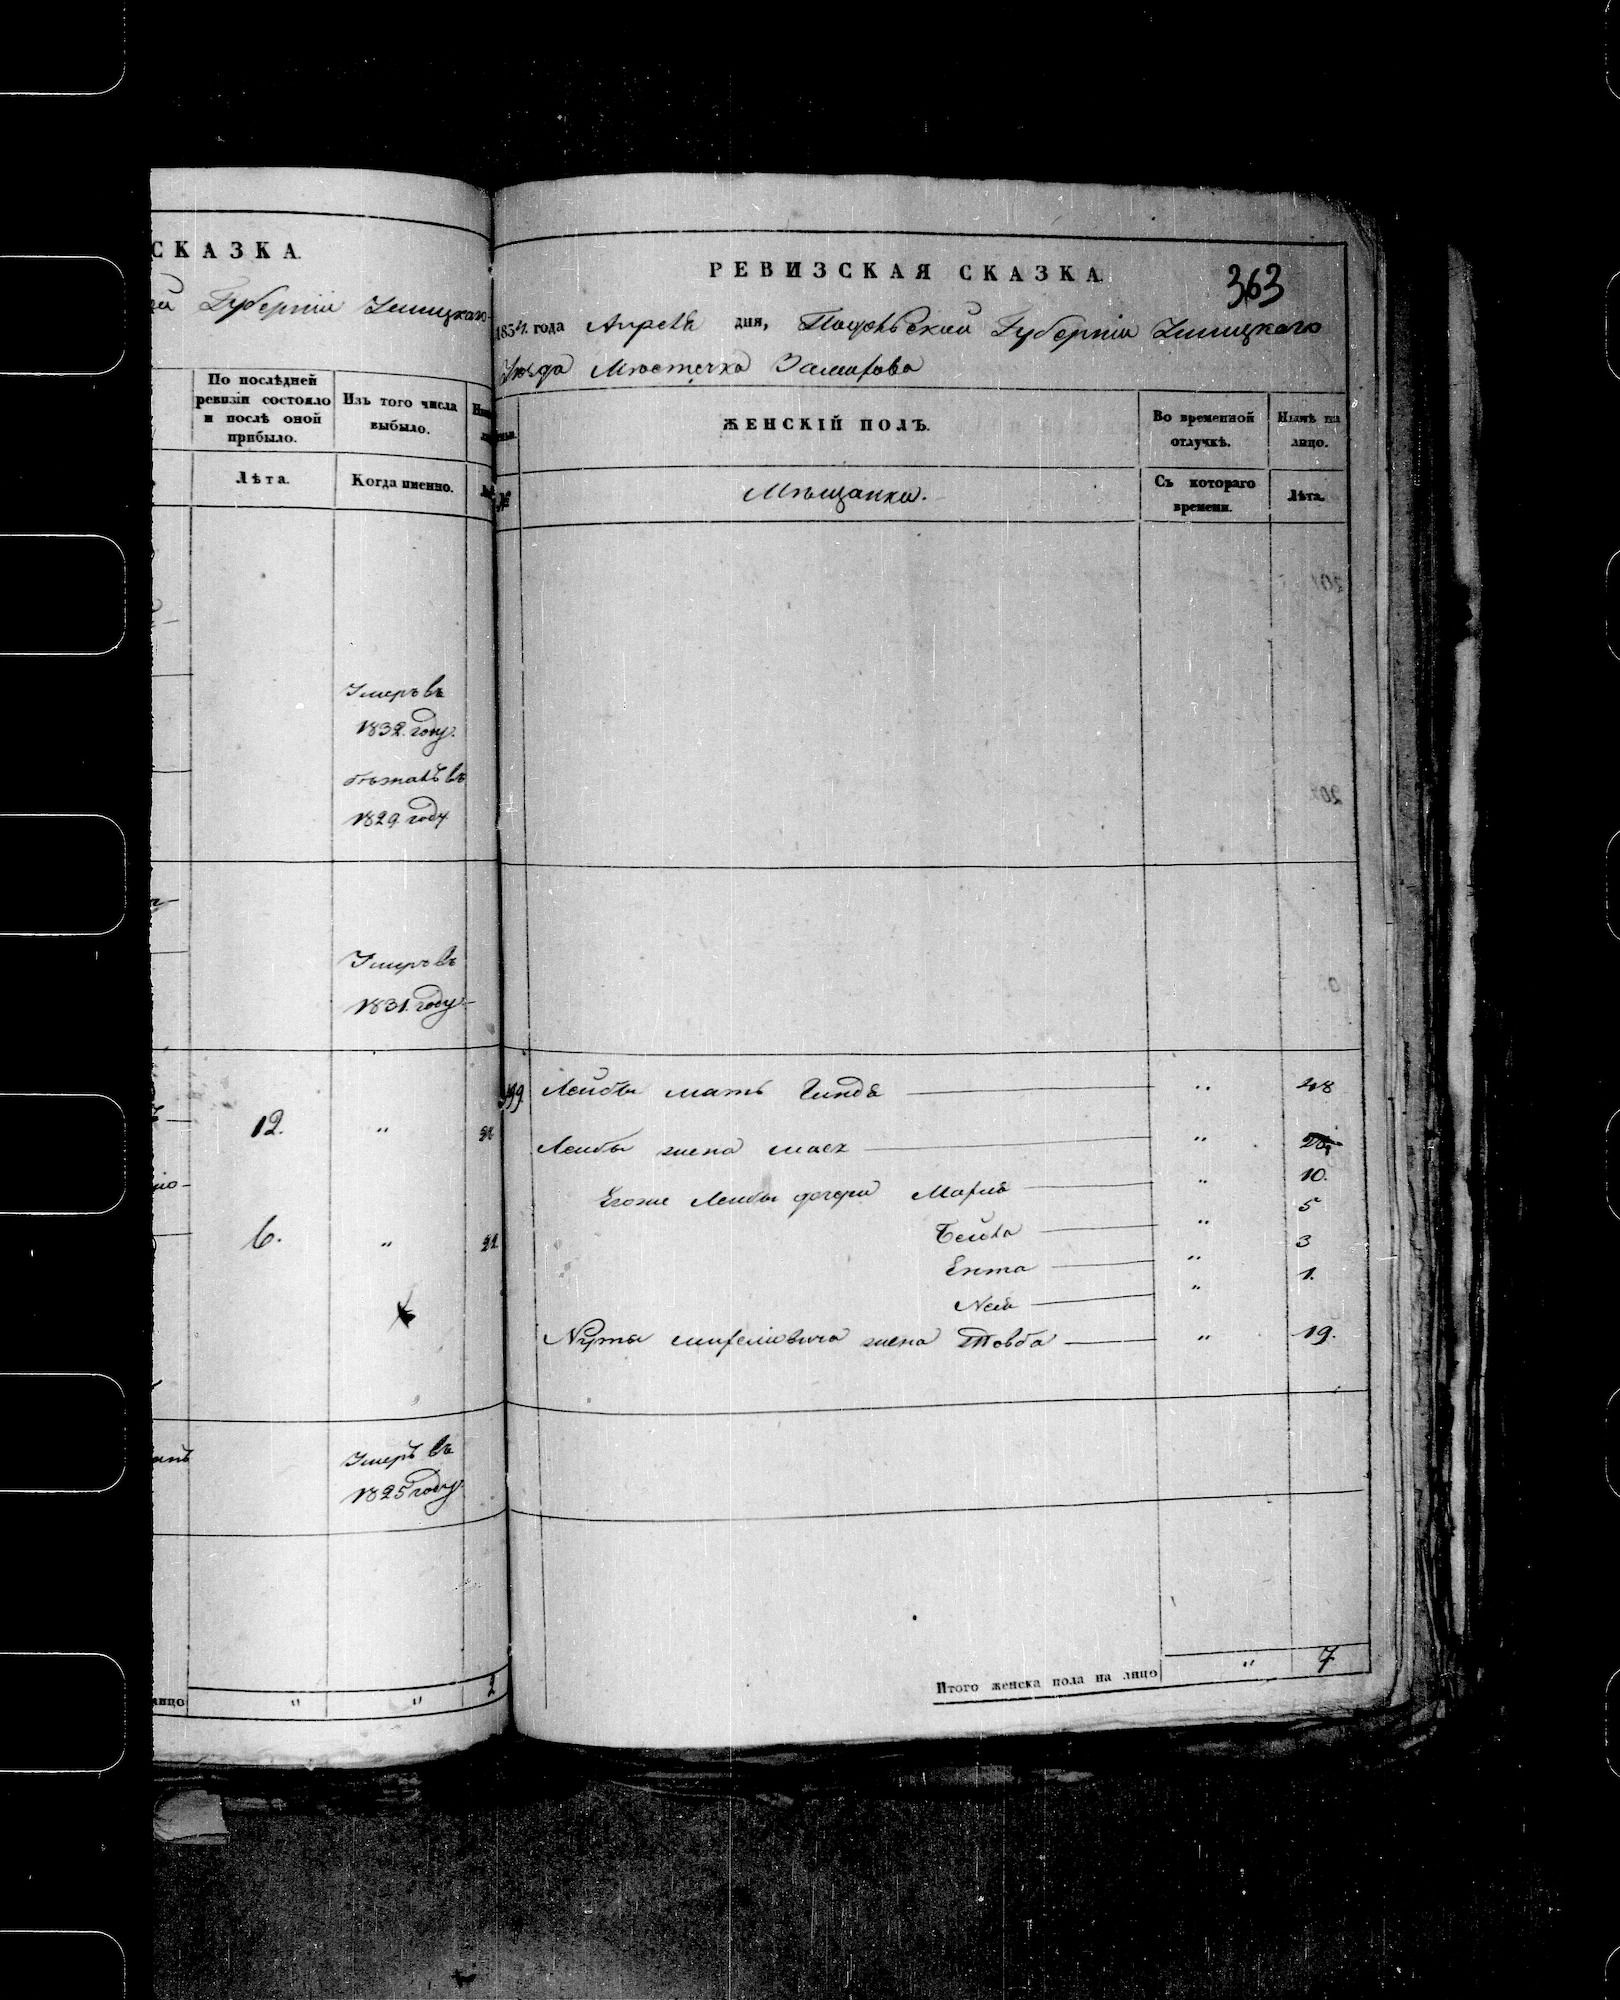 СКАЗКА.
Губерніи Ушицкаго
По послѣдней
ревизіи состояло
и послѣ оной
прибыло.
Изъ того числа
выбыло.
Лѣта.
Когда именно.
Умеръ въ
1832. году.
бѣжалъ въ
1829. году
Умеръ въ
1831. году.
12. "
6. " 22
Умеръ въ
1825 году.
" " 2
РЕВИЗСКАЯ СКАЗКА.
363
1834. года Апреля дня, Подольской Губерніи Ушицкого
Уѣзда Мѣстечка Замѣхова
ЖЕНСКІЙ ПОЛЪ.
Во временной
отлучкѣ.
Нынѣ на
лицо.
№
Мѣщанки.
Съ котораго
времени.
Лѣта.
Лейбы мать Гинда " 48
Лейбы жена "
Егоже Лейбы дочери Марія " 10.
Бейла " 5
Ента " 3
" 1.
жена Товба " 19.
Итого женска пола на лицо " 7